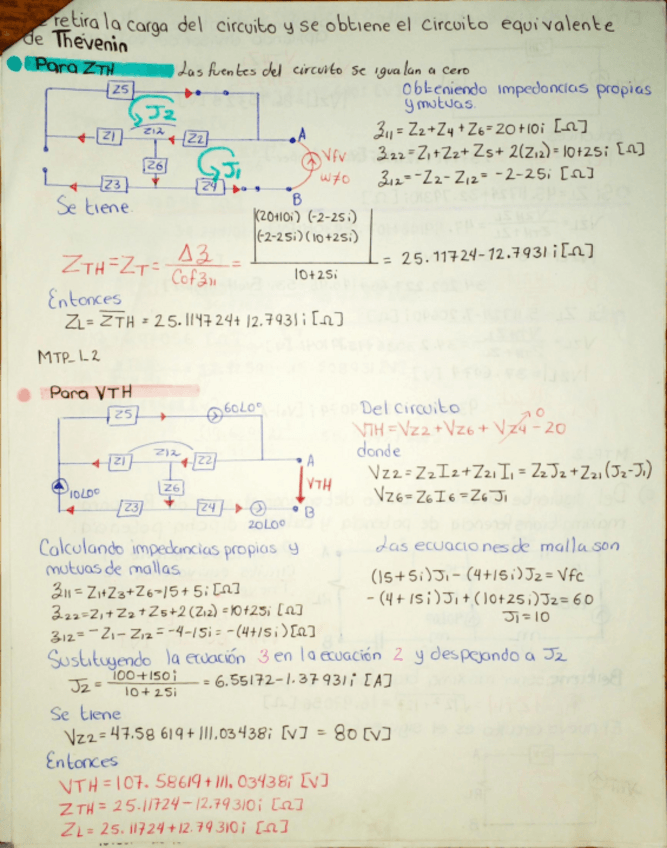 retira la carga del circuito y se obtiene el circuito equivalente
de Thévenin
Para ZTH Las fuentes del circuito se igualan a cero
Z5
J2
Z1 Z12 Z2 A
Z6 J1 Vfv
w≠0
Z3 Z4
B
Obteniendo impedancias propias
y mutuas.
z11 = Z2+Z4+Z6=20+10i [Ω]
z22=Z1+Z2+Z5+2(Z12)=10+25i [Ω]
z12=-Z2-Z12= -2-25i [Ω]
Se tiene.
ZTH=ZT= Δz / Cof z11 = |(20+10i) (-2-25i)
(-2-25i)(10+25i)| / 10+25i = 25.11724-12.7931i[Ω]
Entonces
ZL= ZTH = 25.114724+12.7931i[Ω]
MTP_L2
Para VTH
Z5 60∟0°
Z1 Z12 Z2 A
10∟0° Z6 VTH
Z3 Z4 B
20∟0°
Del circuito
VTH=VZ2+VZ6+VZ4-20
0
donde
VZ2=Z2I2+Z21I1=Z2J2+Z21(J2-J1)
VZ6=Z6I6=Z6J1
Calculando impedancias propias y
mutuas de mallas
z11=Z1+Z3+Z6=15+5i[Ω]
z22=Z1+Z2+Z5+2(Z12)=10+25i [Ω]
z12=-Z1-Z12=-4-15i=-(4+15i)[Ω]
Las ecuaciones de malla son
(15+5i)J1-(4+15i)J2=Vfc
-(4+15i)J1+(10+25i)J2=60
J1=10
Sustituyendo la ecuación 3 en la ecuación 2 y despejando a J2
J2= 100+150i / 10+25i = 6.55172-1.37931i [A]
Se tiene
VZ2=47.58619+111.03438i [V] = 80[V]
Entonces
VTH=107.58619+111.03438i [V]
ZTH=25.11724-12.79310i [Ω]
ZL=25.11724+12.79310i [Ω]